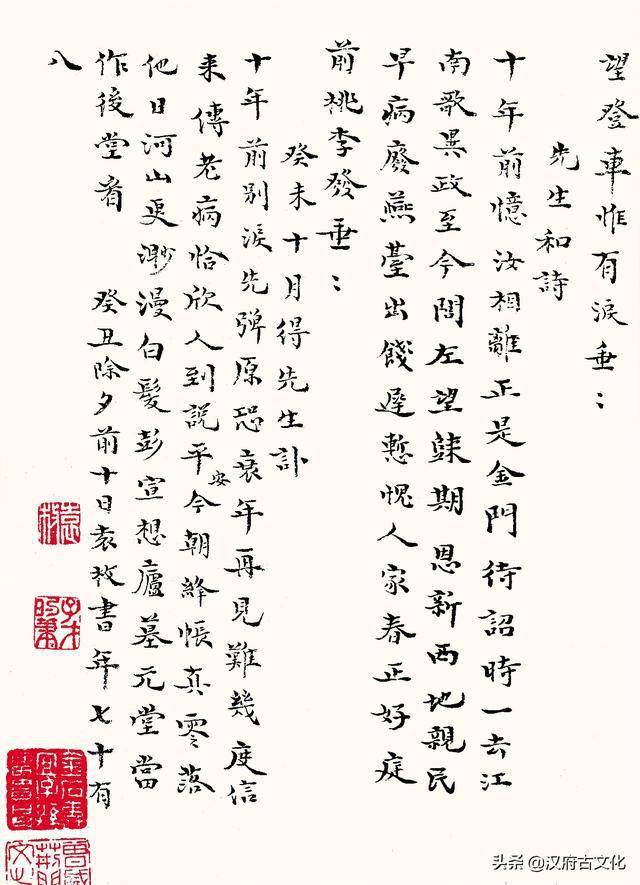 望登車惟有淚垂：
先生和詩
十年前憶汝相離正是金門待詔時一去江
南歌異政至今閣左望蘇期 恩新西地親民
早病廢燕臺出餞遲慙愧人家春正好庭
前桃李發垂：
癸未十月得先生訃
十年前別淚先彈原恐衰年再見難幾度信
來傳老病恰欣人到說平安今朝絳帳真零落
他日河山更渺漫白髮彭宣想廬墓元堂當
作後堂看 癸丑除夕前十日袁枚書年七十有
八
袁枚
头条 @汉府古文化